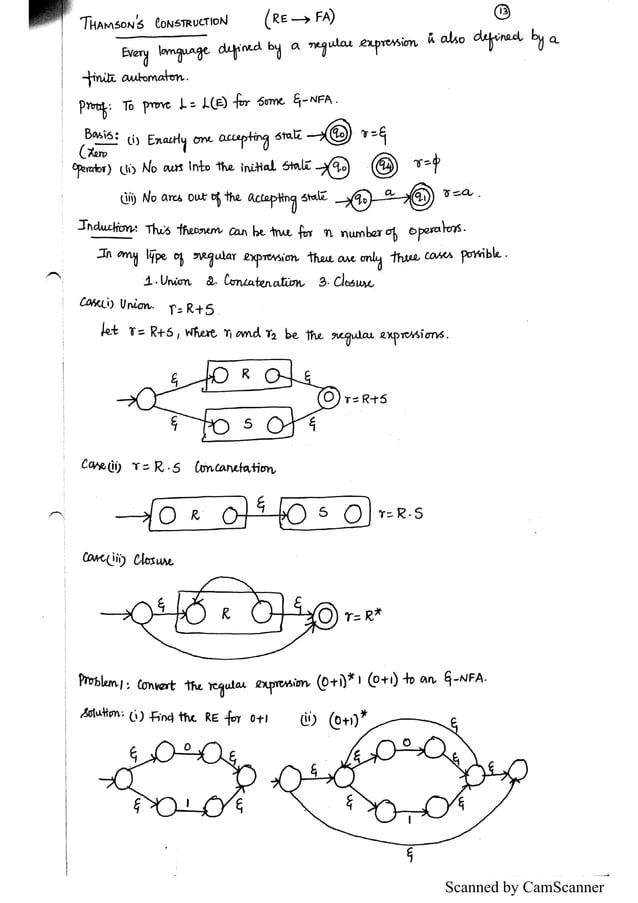 THAMSON'S CONSTRUCTION (RE → FA) 13
Every language defined by a regular expression is also defined by a
finite automaton.
Proof: To prove L = L(E) for some ξ-NFA.
Basis: (i) Exactly one accepting state → q0 r=ξ
(Zero
operator) (ii) No arcs into the initial state → q0 q4 r=ϕ
(iii) No arcs out of the accepting state → q0 a q1 r=a.
Induction: This theorem can be true for n number of operators.
In any type of regular expression there are only three cases possible.
1. Union 2. Concatenation 3. Closure
Case(i) Union. r=R+S
Let r=R+S, where r1 and r2 be the regular expressions.
ξ R ξ
r=R+S
ξ S ξ
Case(ii) r=R.S Concanetation
R ξ S r=R.S
Case(iii) Closure
ξ R ξ r=R*
Problem1: Convert the regular expression (0+1)*1(0+1) to an ξ-NFA.
Solution: (i) Find the RE for 0+1 (ii) (0+1)*
ξ
ξ 0 ξ ξ ξ 0 ξ ξ
ξ 1 ξ ξ 1 ξ
ξ
Scanned by CamScanner